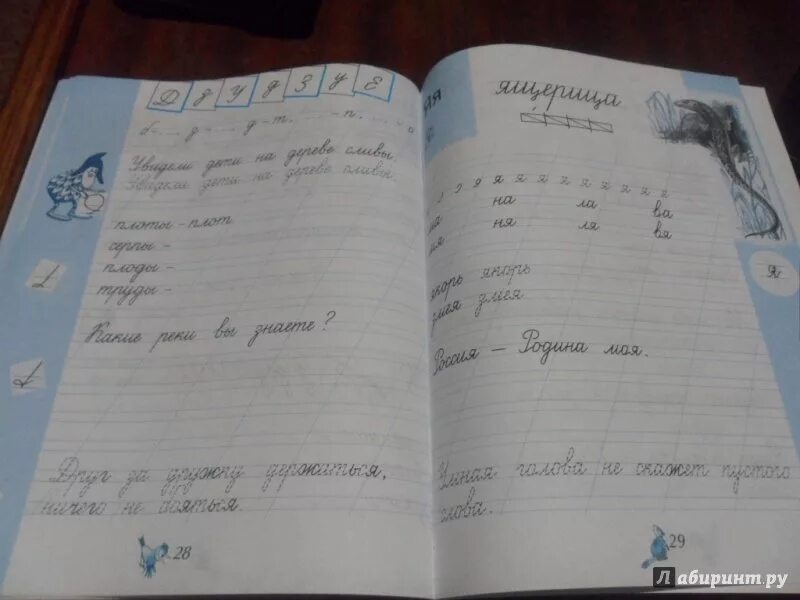 Д д У д З у Е
д – т.
Увидели дети на дереве сливы.
Увидели дети на дереве сливы.
плоты – плот
серпы –
плоды –
труды –
Какие реки вы знаете?
Друг за дружку держаться,
ничего не бояться.
28
ящерица
я я я я я я я я я я
на ла ва
ня ля вя
якорь якорь
змея змея
Я
Россия — Родина моя.
Умная голова не скажет пустого
слова.
29
Лабиринт.ру